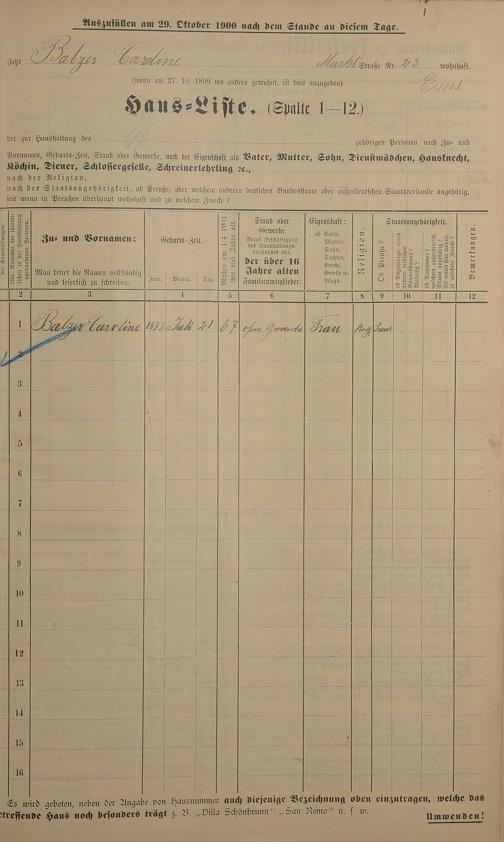 Auszufüllen am 29. Oktober 1900 nach dem Stande an diesem Tage.
Jetzt Balzer Caroline Markt Straße Nr. 23 wohnhaft.
(wenn am 27. 10. 1899 wo anders gewohnt, ist dies anzugeben) Ems
Haus-Liste. (Spalte 1—12.)
der zur Haushaltung des gehörigen Personen nach Zu- und
Vornamen, Geburts-Zeit, Stand oder Gewerbe, nach der Eigenschaft als Vater, Mutter, Sohn, Dienstmädchen, Hausknecht,
Köchin, Diener, Schlossergeselle, Schreinerlehrling ꝛc.,
nach der Religion,
nach der Staatsangehörigkeit, ob Preuße, oder welchem anderen deutschen Bundesstaate oder außerdeutschen Staatsverbande angehörig,
seit wann in Preußen überhaupt wohnhaft und zu welchem Zwecke?
Zu- und Vornamen:
Man bittet die Namen vollständig
und leserlich zu schreiben.
Geburts-Zeit.
Jahr. Monat. Tag.
Stand oder
Gewerbe
der über 16
Jahre alten
Familienmitglieder.
Eigenschaft:
ob Vater,
Mutter,
Sohn,
Tochter,
Knecht,
Magd.
Religion.
Staatsangehörigkeit.
Ob Preuße?
Bemerkungen.
2 3 4 5 6 7 8 9 10 11 12
1 Balzer Caroline Juli 21 67 ohne Gewerbe Frau
2
3
4
5
6
7
8
9
10
11
12
13
14
15
16
Es wird gebeten, neben der Angabe von Hausnummer auch diejenige Bezeichnung oben einzutragen, welche das
treffende Haus noch besonders trägt z. B. „Villa Schönbrunn" „San Remo" u. s. w.
Umwenden!